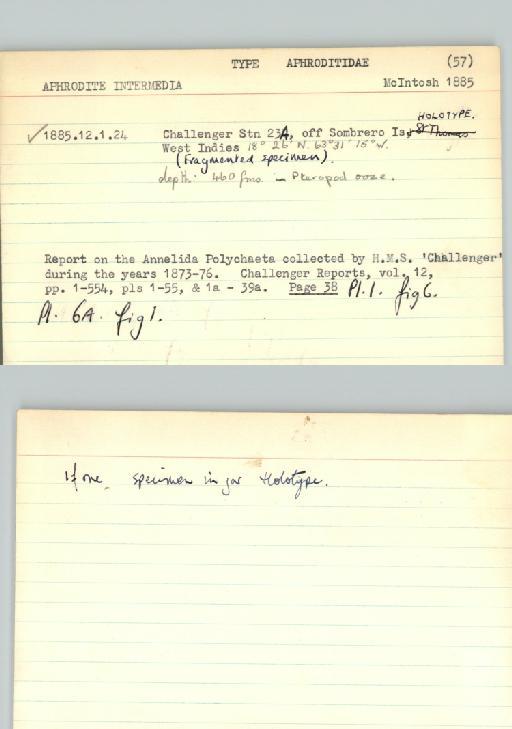 TYPE APHRODITIDAE (57)
APHRODITE INTERMEDIA McIntosh 1885
HOLOTYPE.
✓1885.12.1.24 Challenger Stn 23A, off Sombrero Is, St Thomas
West Indies 18° 26' N. 63° 31' 15" W.
(Fragmented specimen).
depth: 460 fms - Pteropod ooze.
Report on the Annelida Polychaeta collected by H.M.S. 'Challenger'
during the years 1873-76. Challenger Reports, vol. 12,
pp. 1-554, pls 1-55, & 1a - 39a. Page 38 Pl.1. fig 6.
Pl. 6A. fig 1.
If one specimen in jar Holotype.